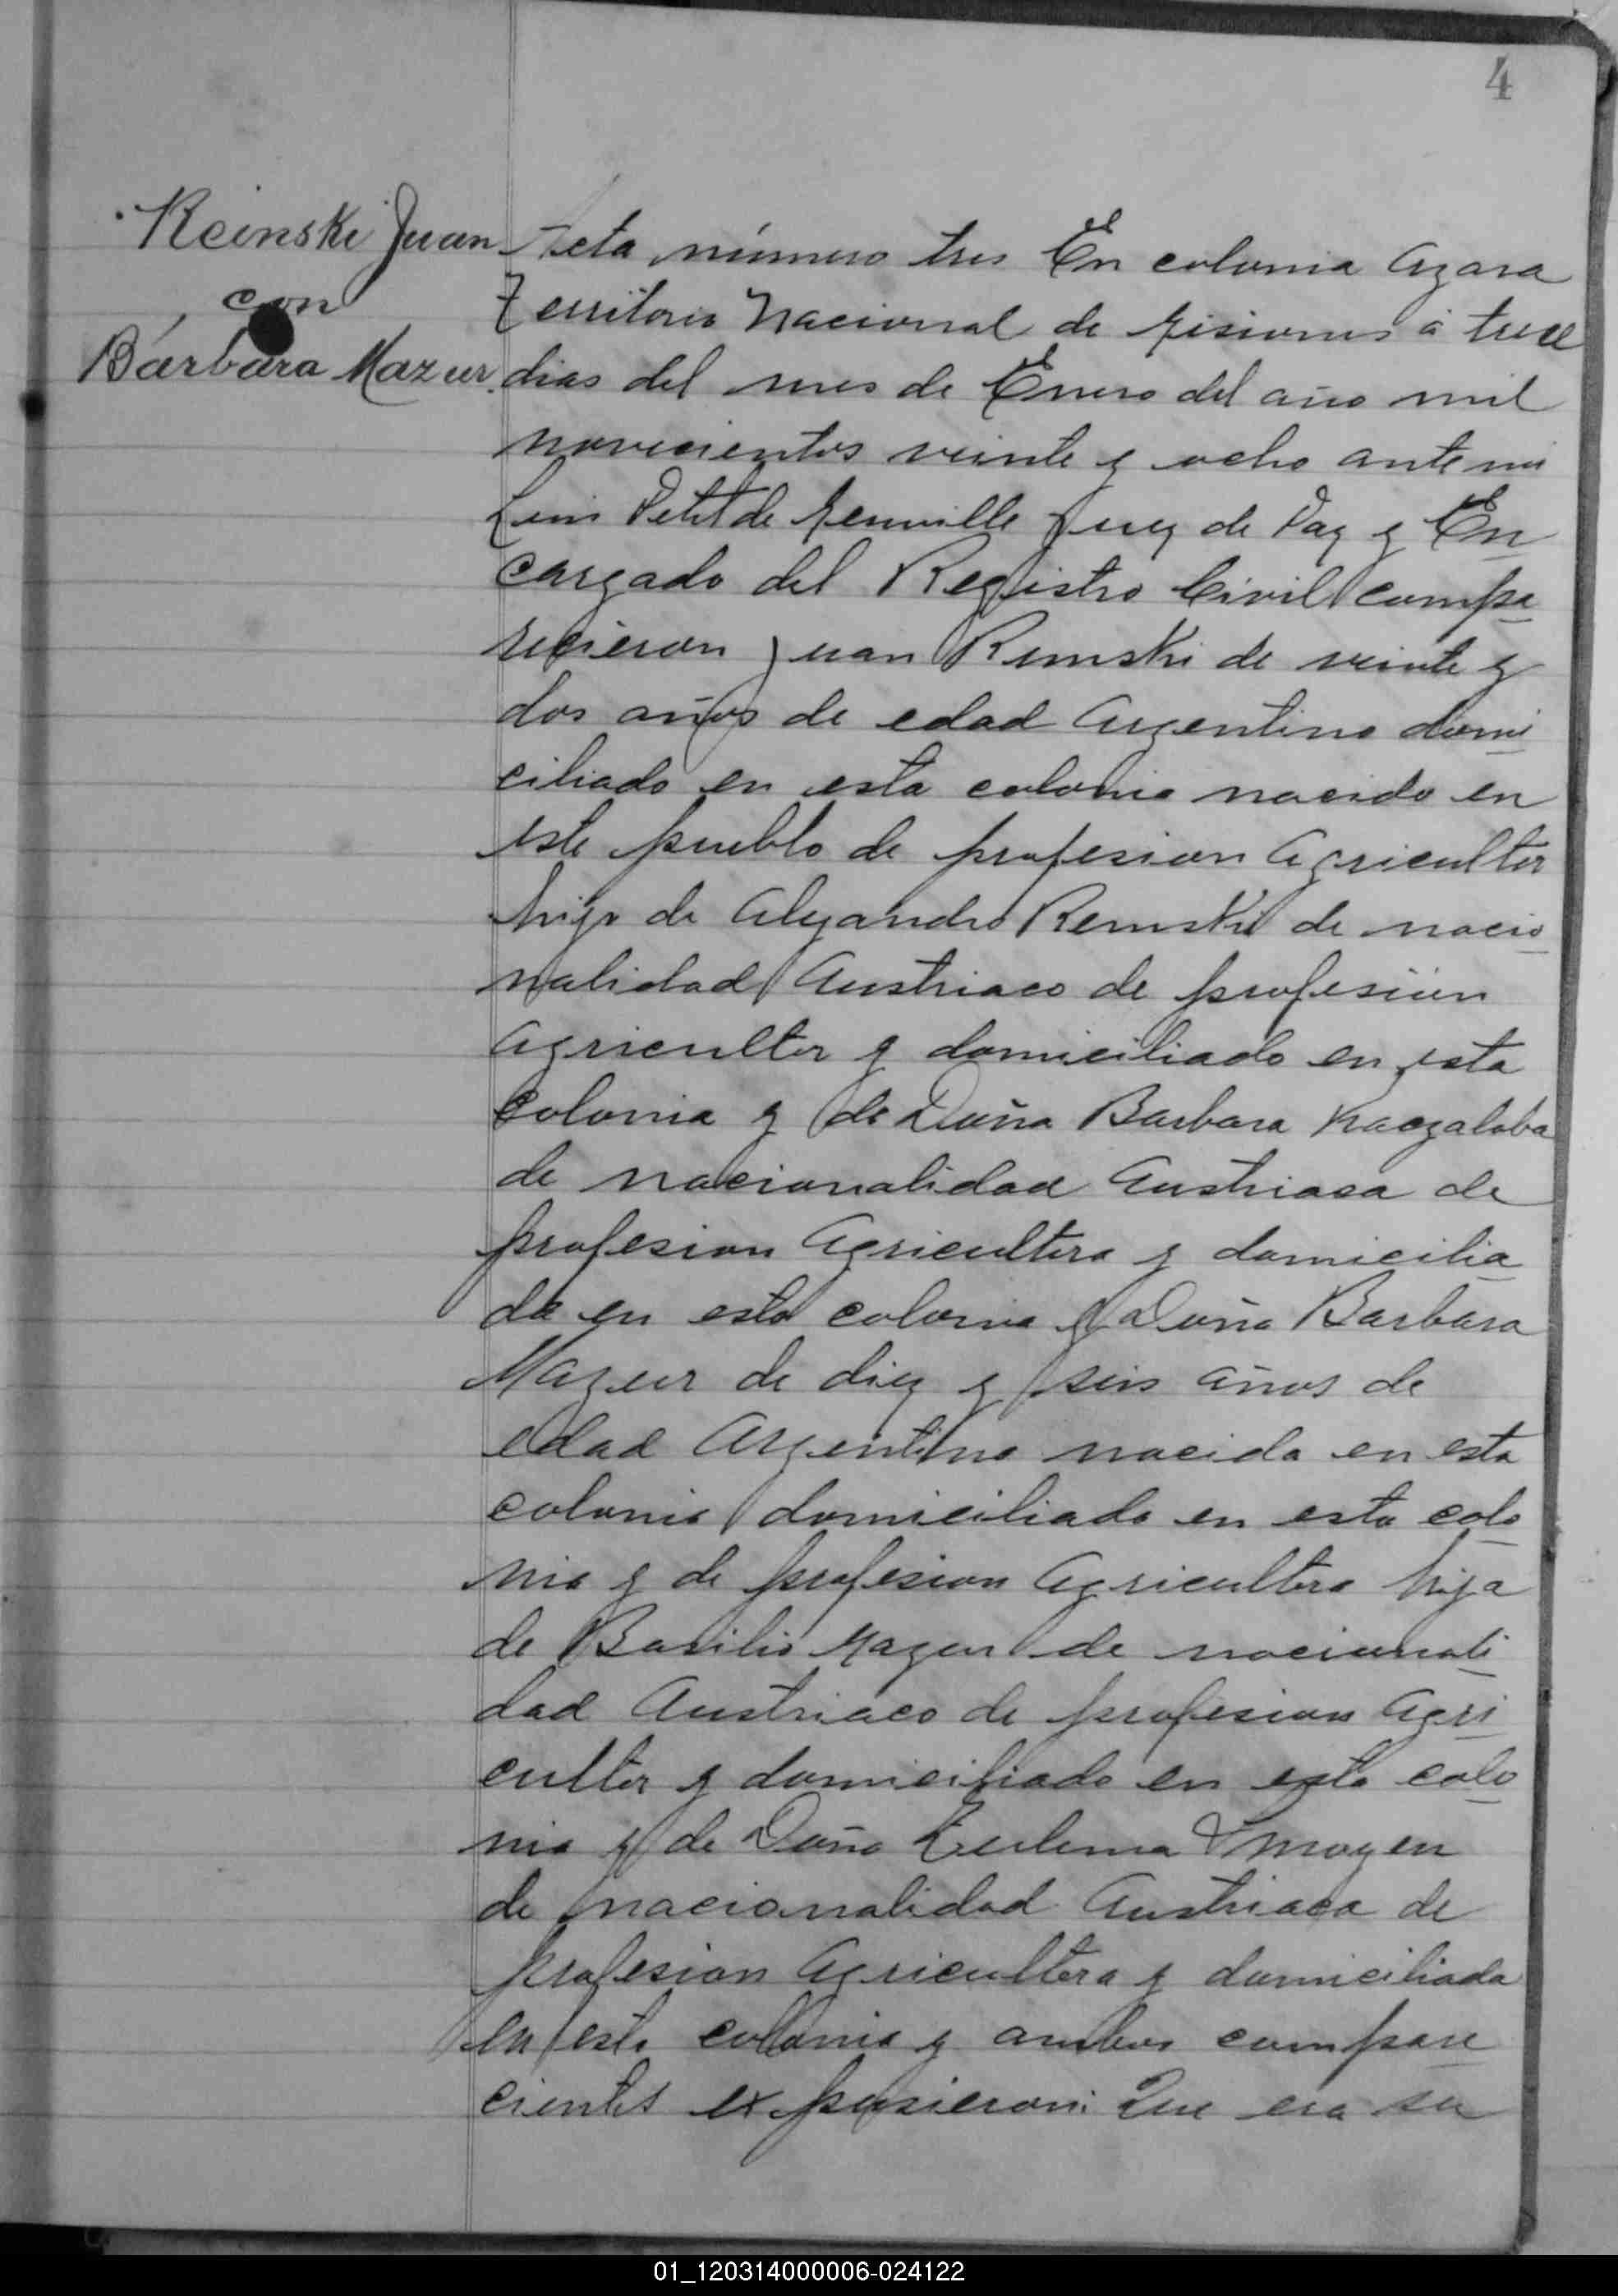 4
Reinski Juan
con
Bárbara Mazur.
Acta número tres En colonia Azara
Territorio Nacional de Misiones á trece
dias del mes de Enero del año mil
novecientos veinte y ocho ante mi
Luis Petit de Meurville Juez de Paz y En
cargado del Registro Civil compa
recieron Juan Remski de veinte y
dos años de edad Argentino domi
ciliado en esta colonia nacido en
este pueblo de profesion Agricultor
hijo de Alejandro Remski de nacio
nalidad Austriaco de profesión
Agricultor y domiciliado en esta
Colonia y de Doña Barbara Kaczalaba
de nacionalidad Austriaca de
profesion Agricultora y domicilia
da en esta colonia y Doña Barbara
Mazur de diez y seis años de
edad Argentina nacida en esta
colonia domiciliada en esta colo
nia y de profesion Agricultora hija
de Basilio Mazur de nacionali
dad Austriaco de profesion Agri
cultor y domiciliado en esta colo
nia y de Doña
de nacionalidad Austriaca de
profesion Agricultora y domiciliada
en esta colonia y ambos compare
cientes expusieron: Que era su
01_120314000006-024122